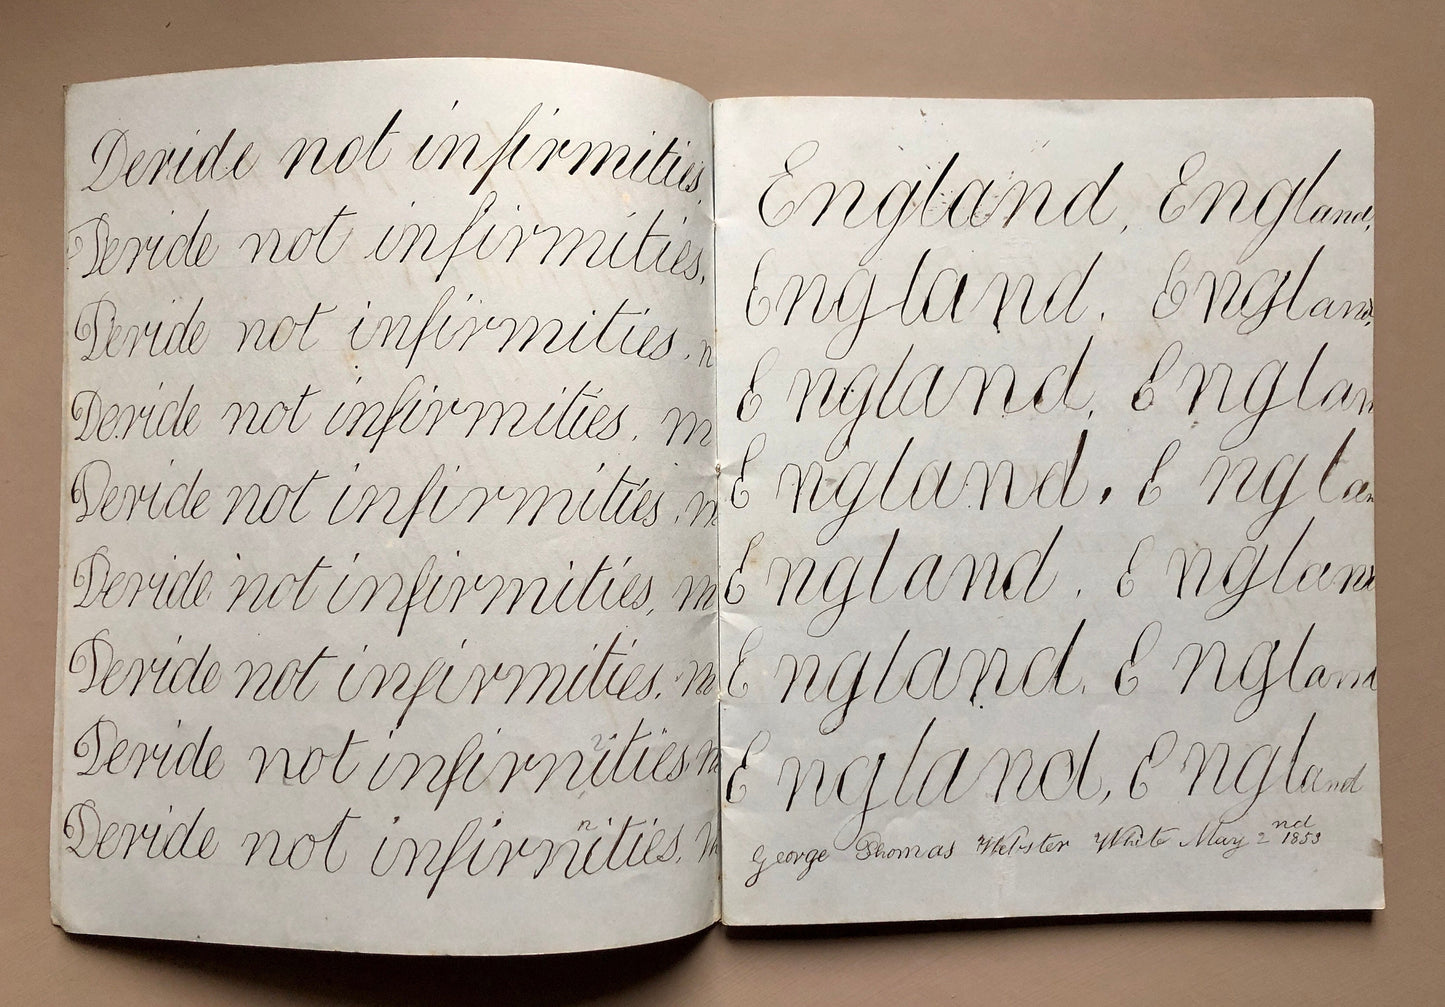 Deride not infirmities,
Deride not infirmities,
Deride not infirmities, n
Deride not infirmities, m
Deride not infirmities, m
Deride not infirmities, m
Deride not infirmities, m
Deride not infirnities m
Deride not infirnities, m
England, England,
England, England,
England, Englan
England, Englan
England, England
England, England
England, England
George Thomas Webster White May 2nd 1853